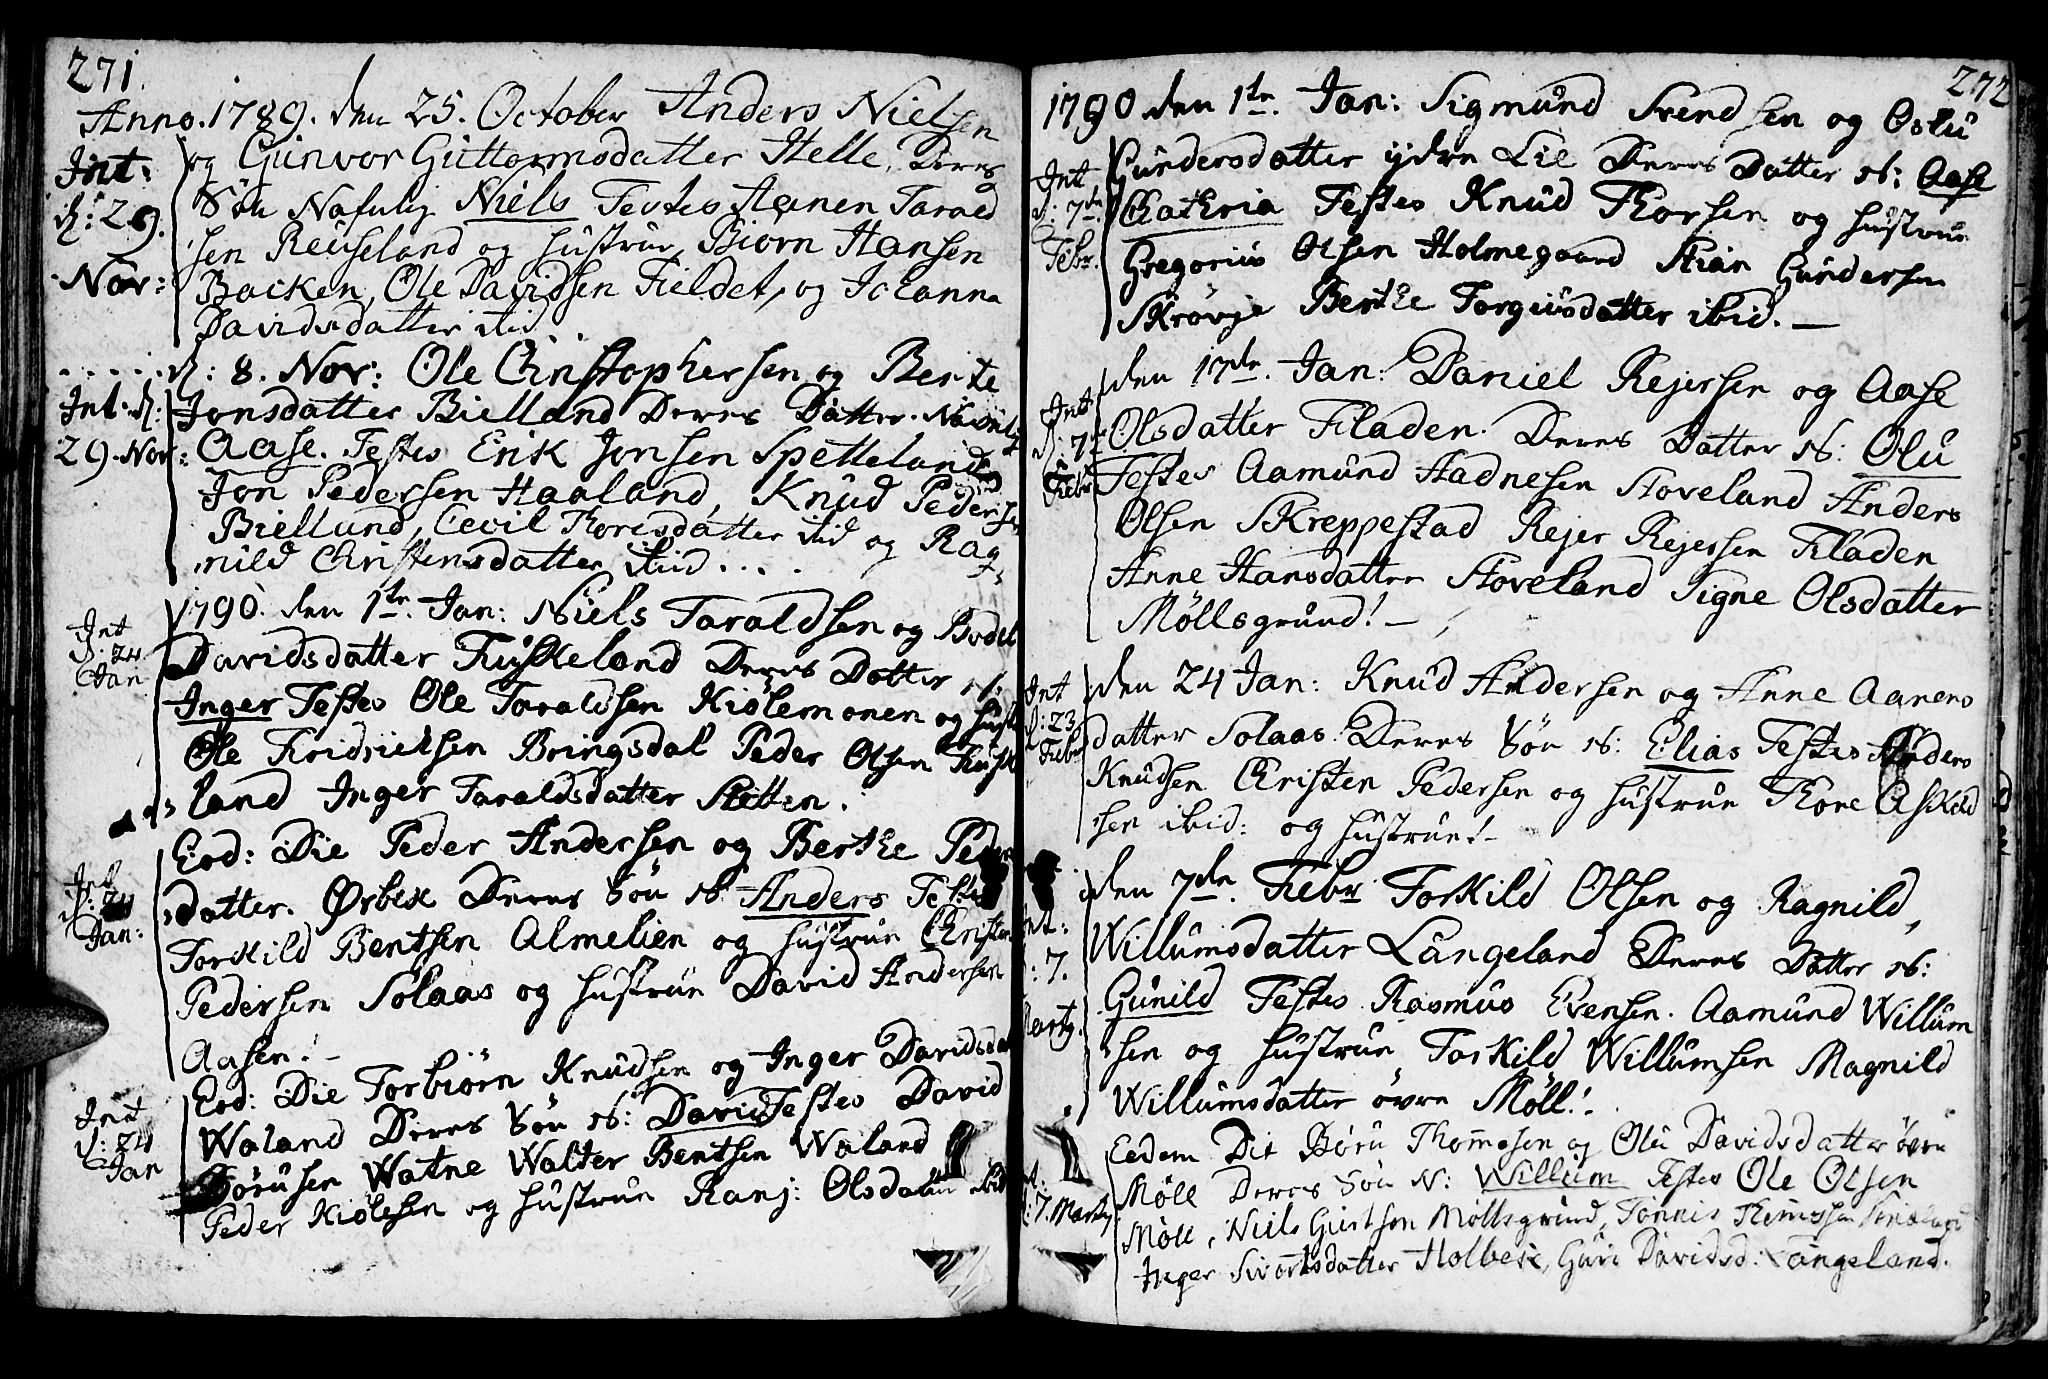 271.
Anno. 1789. den 25. October Anders Nielsen
og Gunvor Guttormsdatter Helle, Deres
Int:
d: 29.
Nov:
Søn Nafnlig Niels Testes Aanen Tarald
sen Reuseland og hustrue, Biørn Hansen
Backen, Ole Davidsen Fieldet, og Johanna
Davidsdatter ibid.
d: 8. Nov: Ole Christophersen og Berte
Int: d:
29. Nov:
Jonsdatter Bielland Deres Datter Navnlig
Aase. Testes Erik Jonsen Spetteland
Jon Pedersen Haaland, Knud Peders
Bielland, Cecil Thorisdatter ibid og Rag
nild Christensdatter ibid....
Int
d: 24
Jan
1790. den 1te. Jan: Niels Taraldsen og Bodel
Davidsdatter Fuskeland Deres Datter N.
Inger Testes Ole Taraldsen Kiölemonen og hust
Ole Fridrichsen Bringsdal Peder Olsen Fusk
land Inger Taraldsdatter Sletten.
Int
d: 24
Jan:
Eod: Die Peder Andersen og Berthe Peders
datter. Ørbek Deres Søn N: Anders Testes
Torkild Bentsen Almelien og hustrue Christen
Pedersen Solaas og hustrue David Andersen
Aasen!-
Int
d: 24
Jan
Eod: Die Torbiörn Knudsen og Inger Davidsdat
Waland Deres Søn N: David Testes David
Börusen Watne Walter Bentsen Waland
Peder Kiölesen og hustrue Ranj: Olsdatter ibid
272
1790 den 1te. Jan: Sigmund Svendsen og Oslu
Int
d: 7de
Febr.
Gundersdatter ydre Lie Deres Datter N: Aase
Chathria Testes Knud Thorsen og hustrue
Gregorius Olsen Holmegaard Stian Gundersen
Skrövje Berthe Torgiusdatter ibid.—
Int
d: 7de
Febr
den 17de. Jan: Daniel Rejersen og Aase
Olsdatter Fladen. Deres Datter N: Olu
Testes Aamund Aadnesen Stoveland Anders
Olsen Skreppestad Rejer Rejersen Fladen
Anne Hansdatter Stoveland Signe Olsdatter
Möllsgrund!-
Int
d: 23
Febr
den 24 Jan: Knud Andersen og Anne Aanens
datter Solaas Deres Søn N: Elias Testes Anders
Knudsen Christen Pedersen og hustrue Thore Askild
sen ibid: og hustrue!-
Int:
: 7.
Marty.
den 7de. Febr Torkild Olsen og Ragnild
Willumsdatter Langeland Deres Datter N:
Gunild Testes Rasmus Evensen. Aamund Willum
sen og hustrue Torkild Willumsen Magnild
Willumsdatter övre Möll!-
d: 7. Marty
Eodem Die Böru Thommesen og Olu Davidsdatter övre
Möll Deres Søn N: Willum Testes Ole Olsen
Möll, Niels Möllsgrund, Tönnis Thomssen
Inger Sivertsdatter Holbek, Guri Davidsd: Langeland.